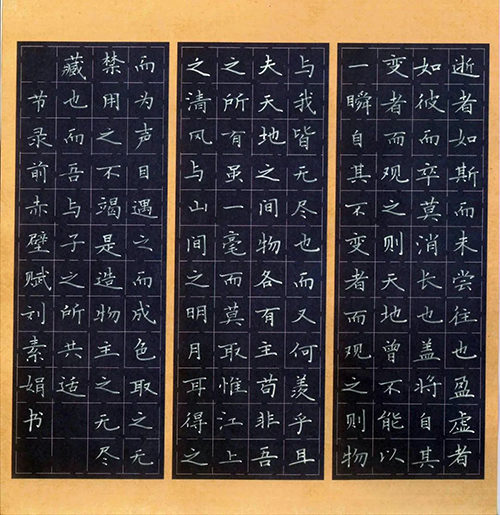 逝者如斯而未尝往也盈虚者
如彼而卒莫消长也盖将自其
变者而观之则天地曾不能以
一瞬自其不变者而观之则物
与我皆无尽也而又何羡乎且
夫天地之间物各有主苟非吾
之所有虽一毫而莫取惟江上
之清风与山间之明月耳得之
而为声目遇之而成色取之无
禁用之不竭是造物主之无尽
藏也而吾与子之所共适
节录前赤壁赋刘素娟书